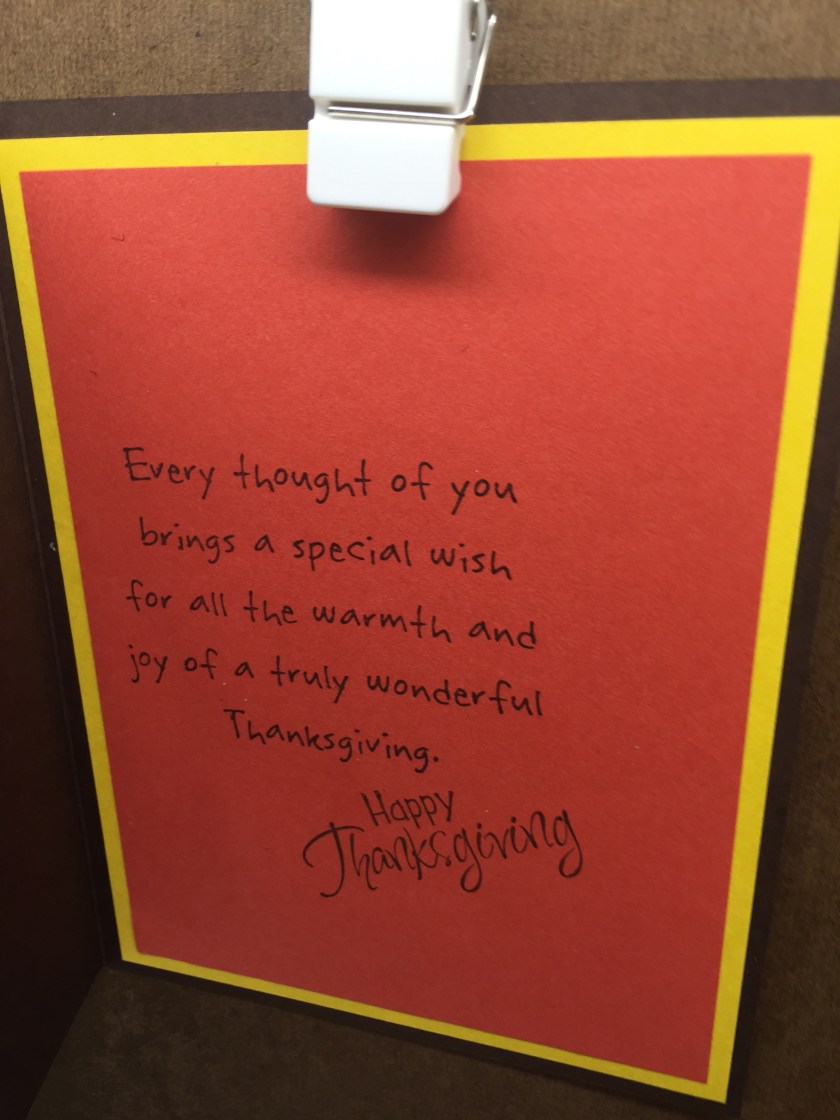 Every thought of you
brings a special wish
for all the warmth and
joy of a truly wonderful
Thanksgiving.
Happy
Thanksgiving